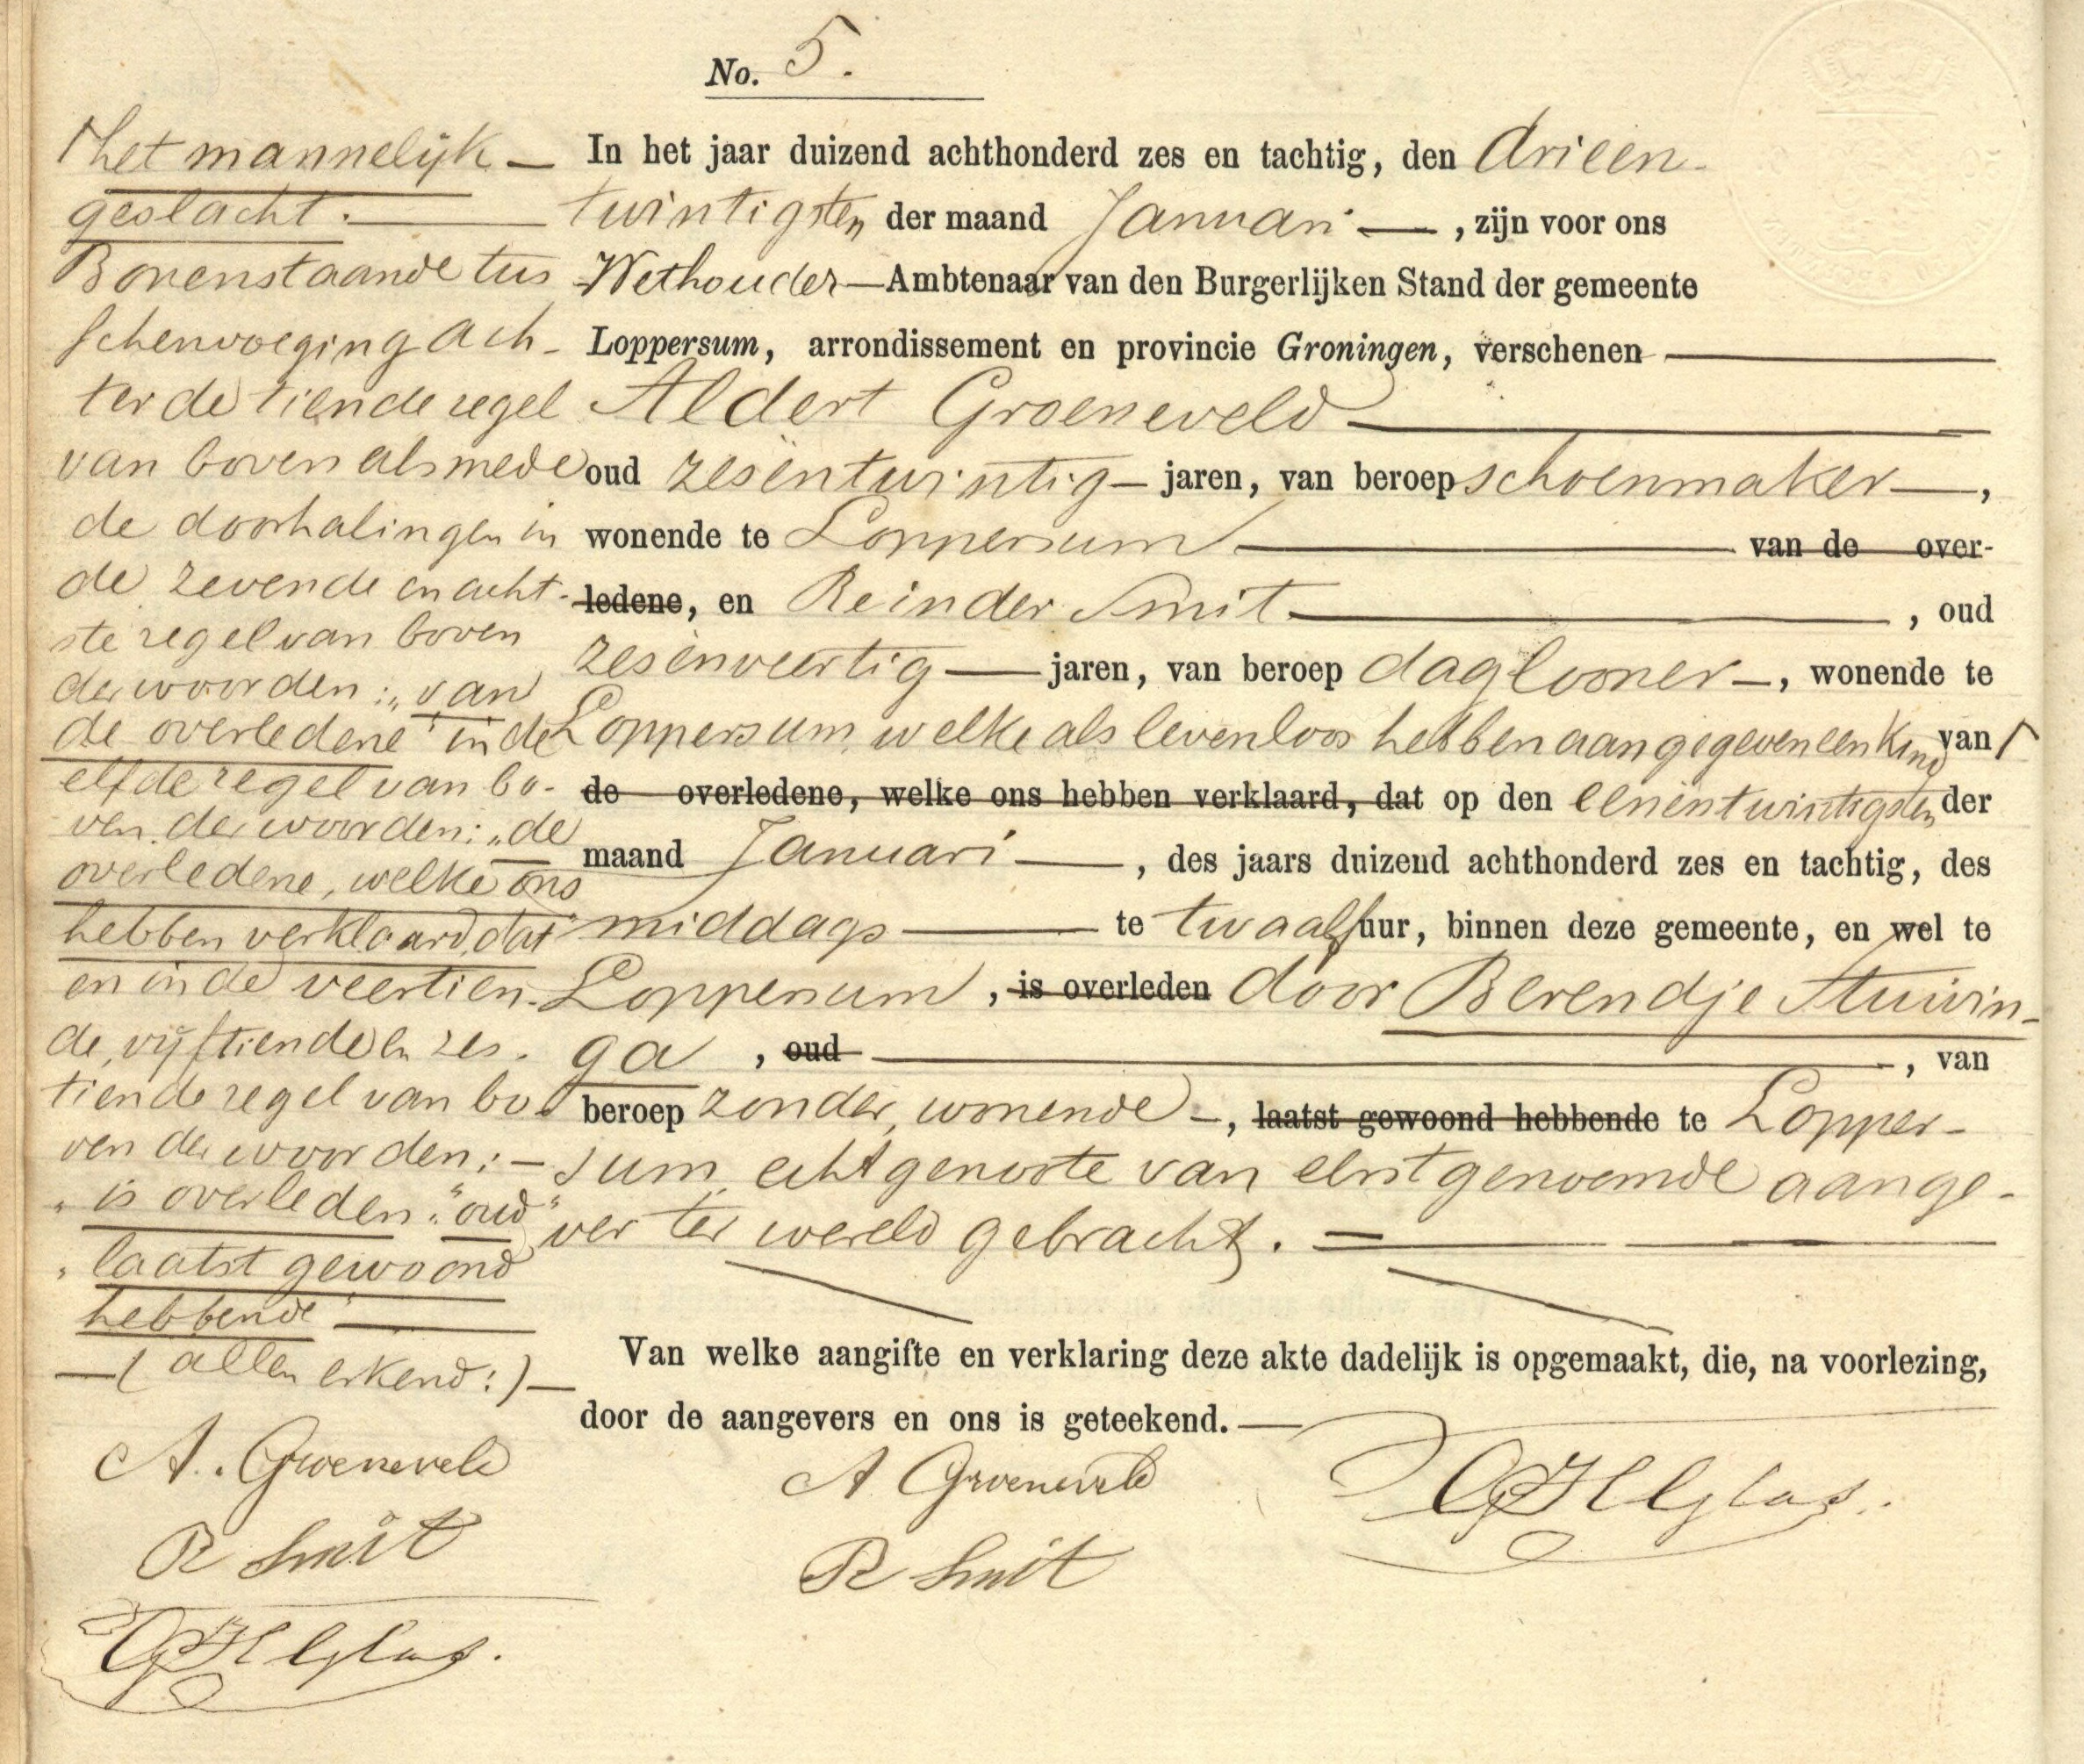 No. 5.
In het jaar duizend achthonderd zes en tachtig, den drieen-
twintigsten der maand Januari —, zijn voor ons
Wethouder — Ambtenaar van den Burgerlijken Stand der gemeente
Loppersum, arrondissement en provincie Groningen, verschenen —
Aldert Groeneveld —
oud zesëntwintig — jaren, van beroep schoenmaker —,
wonende te Loppersum — van de over-
ledene, en Reinder Smit —, oud
zesënveertig — jaren, van beroep daglooner —, wonende te
Loppersum, welke als levenloos hebben aangegeven een kind van ꓩ
de overledene, welke ons hebben verklaard, dat op den eenëntwintigsten der
maand Januari —, des jaars duizend achthonderd zes en tachtig, des
middags — te twaalf uur, binnen deze gemeente, en wel te
Loppersum, is overleden door Berendje Stuivin-
ga, oud —, van
beroep zonder, wonende —, laatst gewoond hebbende te Lopper-
sum, echtgenoote van eerstgenoemde aange-
ver ter wereld gebracht. —
Van welke aangifte en verklaring deze akte dadelijk is opgemaakt, die, na voorlezing,
door de aangevers en ons is geteekend. —
A Groeneveld
R Smit
Glas.
het mannelijk —
geslacht. —
Bovenstaande tus
schenvoeging ach-
ter de tiende regel
van boven alsmede
de doorhalingen in
de zevende en acht-
ste regel van boven
der woorden: „van
de overledene" in de
elfde regel van bo-
ven der woorden: „de
overledene, welke ons
hebben verklaard, dat"
en in de veertien-
de, vijftiende en zes-
tiende regel van bo-
ven der woorden: —
„is overleden" „oud"
„laatst gewoond
hebbende" —
— (allen erkend:) —
A. Groeneveld
R Smit
Glas.